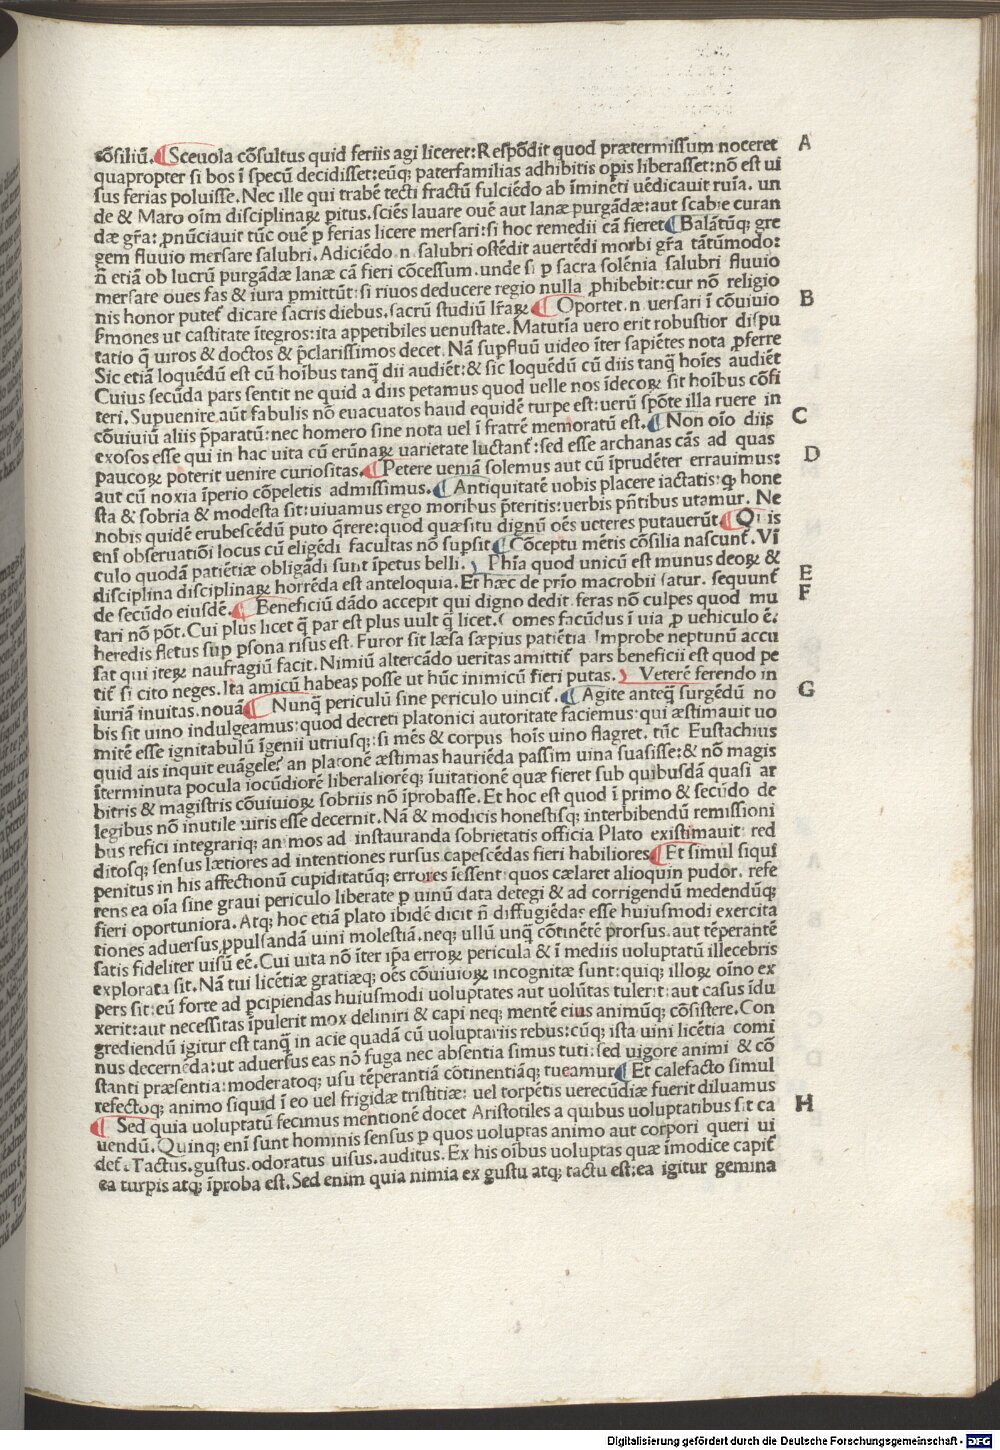 cōſiliū. Sceuola cōſultus quid feriis agi liceret: Reſpōdit quod prætermiſſum noceret A
quapropter ſi bos ī ſpecū decidiſſet: eūq; paterfamilias adhibitis opis liberaſſet: nō eſt ui
ſus ferias poluiſſe. Nec ille qui trabē tecti fractū fulciēdo ab īminēti uēdicauit ruīa. un
de & Maro oīm diſciplinaꝝ ꝑitus. ſciēs lauare ouē aut lanæ purgādæ: aut ſcabie curan
dæ gr̄a: ꝓnūciauit tūc ouē ꝑ ferias licere merſari: ſi hoc remedii cā fieret Balātūq; gre
gem fluuio merſare ſalubri. Adiciēdo .n. ſalubri oſtēdit auertēdi morbi gr̄a tātūmodo:
n̄ etiā ob lucrū purgādæ lanæ cā fieri cōceſſum. unde ſi ꝑ ſacra ſolēnia ſalubri fluuio
merſare oues fas & iura ꝑmittūt: ſi riuos deducere regio nulla ꝓhibebit: cur nō religio
nis honor putet̄ dicare ſacris diebus. ſacrū ſtudiū lr̄aꝝ Oportet .n. uerſari ī cōuiuio B
ſr̄mones ut caſtitate ītegros: ita appetibiles uenuſtate. Matutīa uero erit robuſtior diſpu
tatio q̄ uiros & doctos & p̄clariſſimos decet. Nā ſuꝑfluū uideo īter ſapiētes nota ꝓferre
Sic etiā loquēdū eſt cū hoībus tanq̄ dii audiēt: & ſic loquēdū cū diis tanq̄ hoīes audiēt
Cuius ſecūda pars ſentit ne quid a diis petamus quod uelle nos īdecoꝝ ſit hoībus cōfi
teri. Supuenire aūt fabulis nō euacuatos haud equidē turpe eſt: uerū ſpōte illa ruere in
cōuiuiū aliis p̄paratū: nec homero ſine nota uel ī fratrē memoratū eſt. Non oīo diis C
exoſos eſſe qui in hac uita cū erūnaꝝ uarietate luctant̄: ſed eſſe archanas cās ad quas
paucoꝝ poterit uenire curioſitas. Petere ueniā ſolemus aut cū īprudēter errauimus: D
aut cū noxia īperio cōpeletis admiſſimus. Antiquitatē uobis placere iactatis: ꝙ hone
ſta & ſobria & modeſta ſit: uiuamus ergo moribus p̄teritis: uerbis pn̄tibus utamur. Ne
nobis quidē erubeſcēdū puto q̄rere: quod quæſitu dignū oēs ueteres putauerūt Quis
enī obſeruatiōi locus cū eligēdi facultas nō ſupſit Cōceptu mētis cōſilia naſcunt̄. Vī
culo quodā patiētiæ obligādi ſunt īpetus belli. Phīa quod unicū eſt munus deoꝝ &
diſciplina diſciplinaꝝ horrēda eſt anteloquia. Et hæc de prīo macrobii ſatur. ſequunt̄ E
de ſecūdo eiuſdē. Beneficiū dādo accepit qui digno dedit. feras nō culpes quod mu F
tari nō pōt. Cui plus licet q̄ par eſt plus uult q̄ licet. Comes facūdus ī uia ꝑ uehiculo ē.
heredis fletus ſup ꝑſona riſus eſt. Furor fit læſa ſæpius patiētia Improbe neptunū accu
ſat qui iteꝝ naufragiū facit. Nimiū altercādo ueritas amittit̄ pars beneficii eſt quod pe
tit̄ ſi cito neges. Ita amicū habeas poſſe ut hūc inimicū fieri putas. Veterē ferendo in
iuriā inuitas. nouā Nunq̄ periculū ſine periculo uincit̄. Agite anteq̄ ſurgēdū no G
bis ſit uino indulgeamus: quod decreti platonici autoritate faciemus: qui æſtimauit uo
mitē eſſe ignitabulū īgenii utriuſq;: ſi mēs & corpus hoīs uino flagret. tūc Euſtachius
quid ais inquit euāgele? an platonē æſtimas hauriēda paſſim uina ſuaſiſſe: & nō magis
īterminuta pocula iocūdiorē liberaliorēq; īuitationē quæ fieret ſub quibuſdā quaſi ar
bitris & magiſtris cōuiuioꝝ ſobriis nō īprobaſſe. Et hoc eſt quod ī primo & ſecūdo de
legibus nō inutile uiris eſſe decernit. Nā & modicis honeſtiſq; interbibendū remiſſioni
bus refici integrariq; animos ad inſtauranda ſobrietatis officia Plato exiſtimauit: red
ditoſq; ſenſus lætiores ad intentiones rurſus capeſcēdas fieri habiliores Et ſimul ſiqui
penitus in his affectionū cupiditatūq; errores īeſſent: quos cælaret alioquin pudor. refe
rens ea oīa ſine graui periculo liberate ꝑ uinū data detegi & ad corrigendū medendūq;
fieri oportuniora. Atq; hoc etiā plato ibidē dicit n̄ diffugiēdas eſſe huiuſmodi exercita
tiones aduerſus ꝓpulſandā uini moleſtiā. neq; ullū unq̄ cōtinētē prorſus. aut tēperantē
ſatis fideliter uiſū eē. Cui uita nō īter ip̄a erroꝝ pericula & ī mediis uoluptatū illecebris
explorata ſit. Nā tui licētiæ gratiæq; oēs cōuiuioꝝ incognitæ ſunt: quiq; illoꝝ oīno ex
pers ſit: eū forte ad ꝑcipiendas huiuſmodi uoluptates aut uolūtas tulerit: aut caſus īdu
xerit: aut neceſſitas īpulerit mox deliniri & capi neq; mentē eius animūq; cōſiſtere. Con
grediendū igitur eſt tanq̄ in acie quadā cū uoluptariis rebus: cūq; iſta uini licētia comi
nus decernēda: ut aduerſus eas nō fuga nec abſentia ſimus tuti: ſed uigore animi & cō
ſtanti præſentia: moderatoq; uſu tēperantiā cōtinentiāq; tueamur Et calefacto ſimul
refectoq; animo ſiquid ī eo uel frigidæ triſtitiæ: uel torpētis uerecūdiæ fuerit diluamus
Sed quia uoluptatū fecimus mentionē docet Ariſtotiles a quibus uoluptatibus ſit ca H
uendū. Quinq; enī ſunt hominis ſenſus ꝑ quos uoluptas animo aut corpori queri ui
det̄. Tactus. guſtus. odoratus uiſus. auditus. Ex his oībus uoluptas quæ īmodice capit̄
ea turpis atq; īproba eſt. Sed enim quia nimia ex guſtu atq; tactu eſt: ea igitur gemina
Digitalisierung gefördert durch die Deutsche Forschungsgemeinschaft - DFG